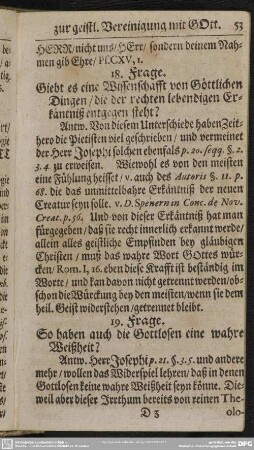 zur geistl. Vereinigung mit GOtt. 53
HERR/nicht uns/HErr/sondern deinem Nah-
men gib Ehre/ Pf.CXV, 1.
18. Frage.
Giebt es eine Wissenschafft von Göttlichen
Dingen/die der rechten lebendigen Er-
käntniß entgegen steht?
Antw. Von diesem Unterschiede haben Zeit-
hero die Pietisten viel geschrieben/ und vermeinet
der Herr Josephi solchen ebenfals p. 20. seqq. §. 2.
3. 4. zu erweisen. Wiewohl es von den meisten
eine Fühlung heisset/ v. auch des Autoris §. 11. p.
68. die das unmittelbahre Erkäntniß der neuen
Creatur seyn solle. v. D. Spenern in Conc. de Nov.
Creat. p. 56. Und von dieser Erkäntniß hat man
fürgegeben/daß sie recht innerlich erkannt werde/
allein alles geistliche Empfinden bey gläubigen
Christen / muß das wahre Wort GOttes wür-
cken/ Rom. I, 16. eben diese Krafft ist beständig im
Worte/ und kan davon nicht getrennet werden/ob-
schon die Würckung bey den meisten/wenn sie dem
heil. Geist widerstehen/getrennet bleibt.
19. Frage.
So haben auch die Gottlosen eine wahre
Weißheit?
Antw. Herr Josephi p. 21. §. 3. 5. und andere
mehr/ wollen das Widerspiel lehren/ daß in denen
Gottlosen keine wahre Weißheit seyn könne. Die-
weil aber dieser Irrthum bereits von reinen The-
D 3 olo-